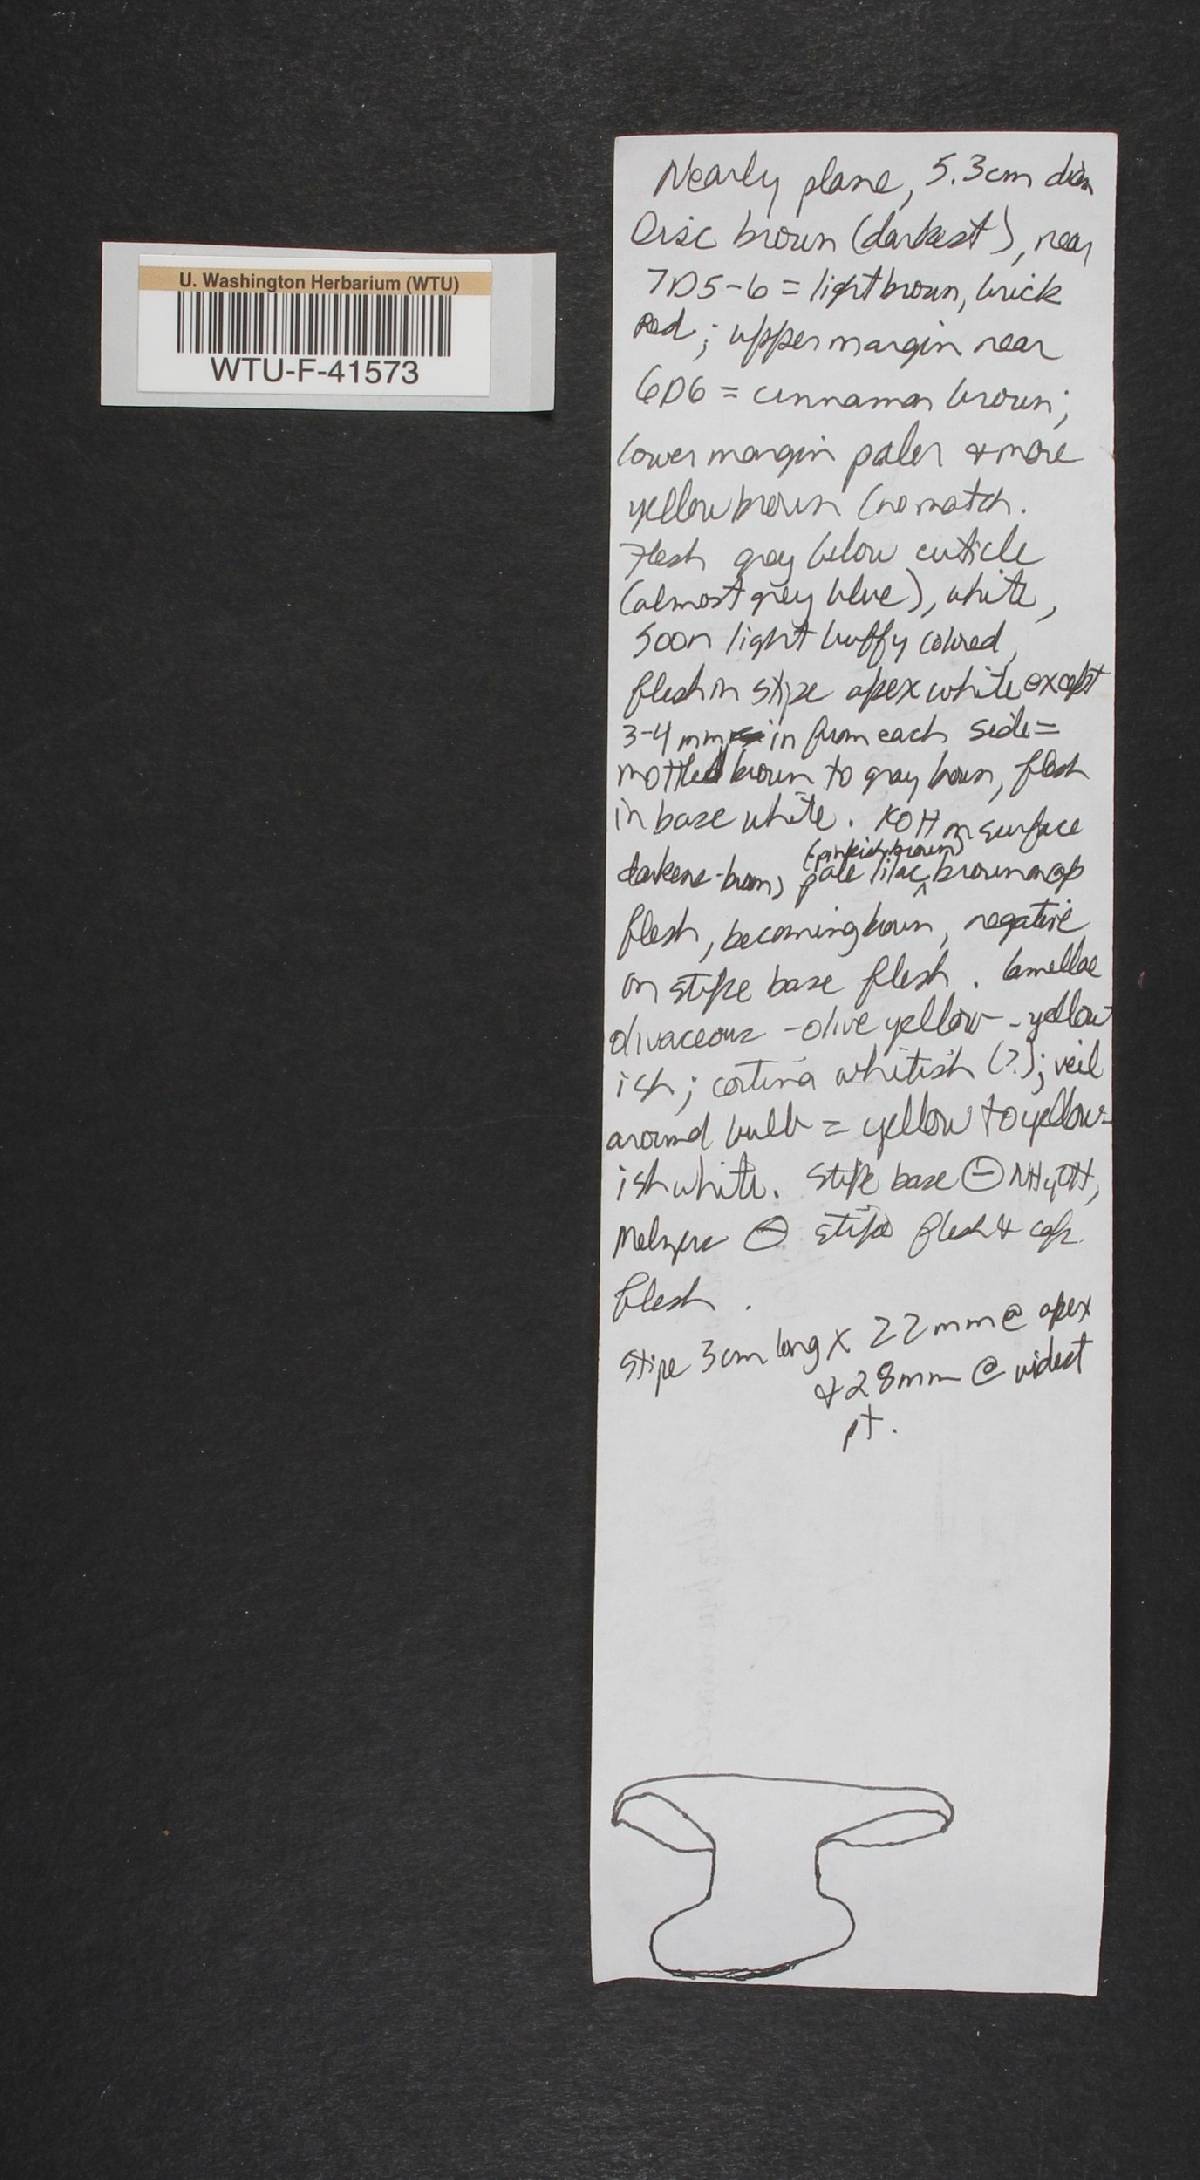 U. Washington Herbarium (WTU)
WTU-F-41573
Nearly plane, 5.3cm diam
Disc brown (darkest), near
7D5-6 = light brown, brick
red; upper margin near
6D6 = cinnamon brown;
lower margin paler & more
yellow brown (no match.
Flesh gray below cuticle
(almost grey blue), white,
soon light buffy colored,
flesh in stipe apex white except
3-4 mm in from each side =
mottled brown to gray brown, flesh
in base white. KOH on surface
(pinkish brown)
darkens-brown, pale lilac ^ brown on cap
flesh, becoming brown, negative
on stipe base flesh. Lamellae
olivaceous - olive yellow - yellow
ish; cortina whitish (?); veil
around bulb = yellow to yellow=
ish white. Stipe base ⊖ NH4OH,
Melzers ⊖ stipe flesh & cap
flesh.
Stipe 3cm long x 22mm @ apex
& 28mm @ widest
pt.